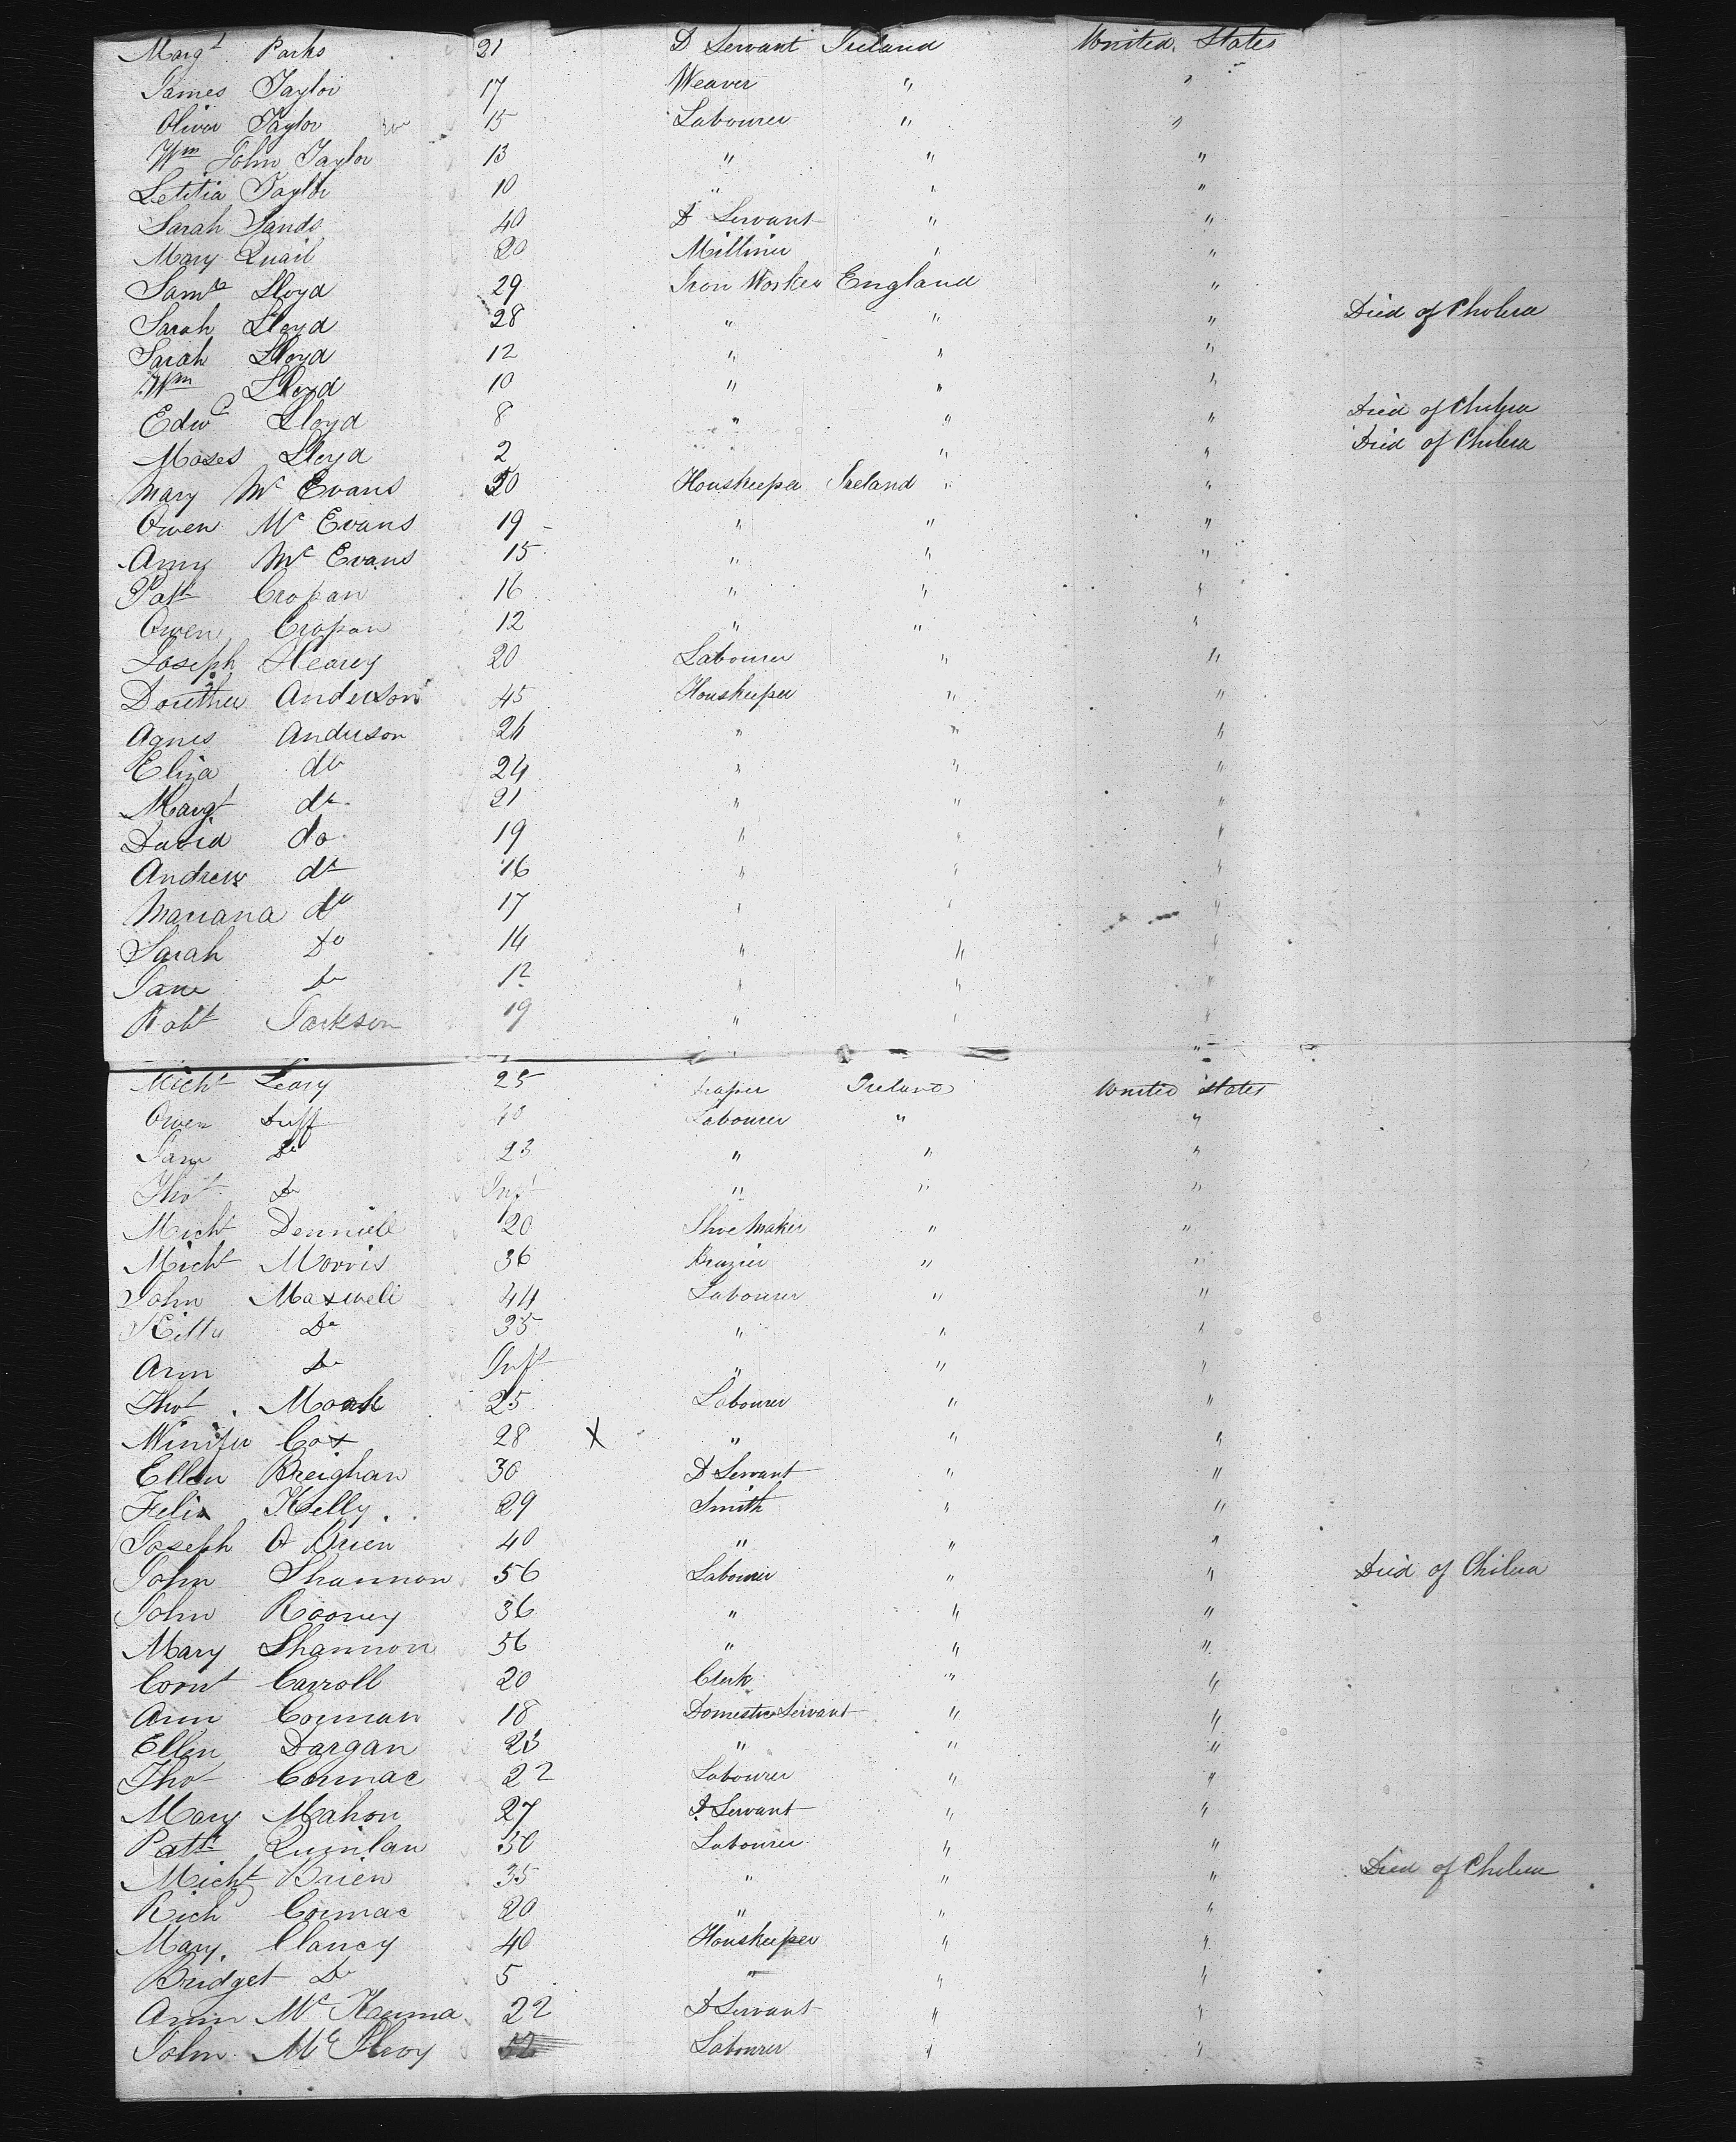 Margt Parks 21 D Servant Ireland United States
James Taylor 17 Weaver " "
Oliver Taylor 15 Labourer " "
Wm John Taylor 13 " " "
Letitia Taylor 10 " " "
Sarah Sands 40 D Servant " "
Mary Quail 20 Milliner " "
Saml Lloyd 29 Iron Worker England "
Sarah Lloyd 28 " " " Died of Cholera
Sarah Lloyd 12 " " "
Wm Lloyd 10 " " "
Edwd Lloyd 8 " " " Died of Cholera
Moses Lloyd 2 " " Died of Cholera
Mary Mc Evans 50 Houskeeper Ireland " "
Owen Mc Evans 19 " " "
Amy Mc Evans 15 " " "
Patt Cropan 16 " " "
Owen Cropan 12 " " "
Joseph Hearey 20 Labourer " "
Dorithea Anderson 45 Houskeeper " "
Agnes Anderson 26 " " "
Eliza do 24 " " "
Margt do 21 " " "
David do 19 " " "
Andrew do 16 " " "
Mariana do 17 " " "
Sarah Do 14 " " "
Jane Do 12 " " "
Robt Jackson 19 " " "
Michl Leary 25 Ireland United States
Owen Duff 40 Labourer " "
Jane Do 23 " " "
Thos Do Inft " " "
Michl 20 Shoe Maker " "
Michl Morris 36 Brazier " "
John Maxwell 44 Labourer " "
Kitty Do 35 " " "
Ann Do Inft " " "
Thos 25 Labourer " "
Winifer Cox 28 X " " "
Ellen Breighan 30 D Servant " "
Felix Kelly 29 Smith " "
Joseph O Brien 40 " " "
John Shannon 56 Labourer " " Died of Cholera
John Rooney 36 " " "
Mary Shannon 56 " " "
Carroll 20 Clerk " "
Ann Corman 18 Domestic Servant " "
Ellen Dargan 23 " " "
Thos Cormac 22 Labourer " "
Mary Mahon 27 D Servant " "
Patt Quinlan 30 Labourer " "
Michl Brien 35 " " " Died of Cholera
Richd Cormac 20 " " "
Mary Clancy 40 Houskeeper " "
Bridget Do 5 " " "
Ann Mc Kenna 22 D Servant " "
John Mc Ilroy Labourer " "